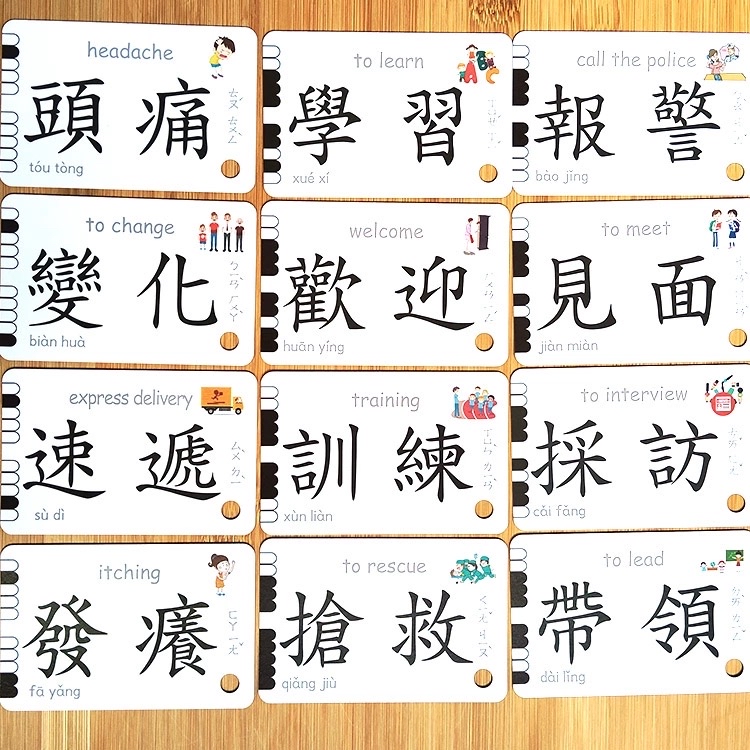 headache
頭痛
tóu tòng
to learn
學習
xué xí
call the police
報警
bào jǐng
to change
變化
biàn huà
welcome
歡迎
huān yíng
to meet
見面
jiàn miàn
express delivery
速遞
sù dì
training
訓練
xùn liàn
to interview
採訪
cǎi fǎng
itching
發癢
fā yǎng
to rescue
搶救
qiǎng jiù
to lead
帶領
dài lǐng